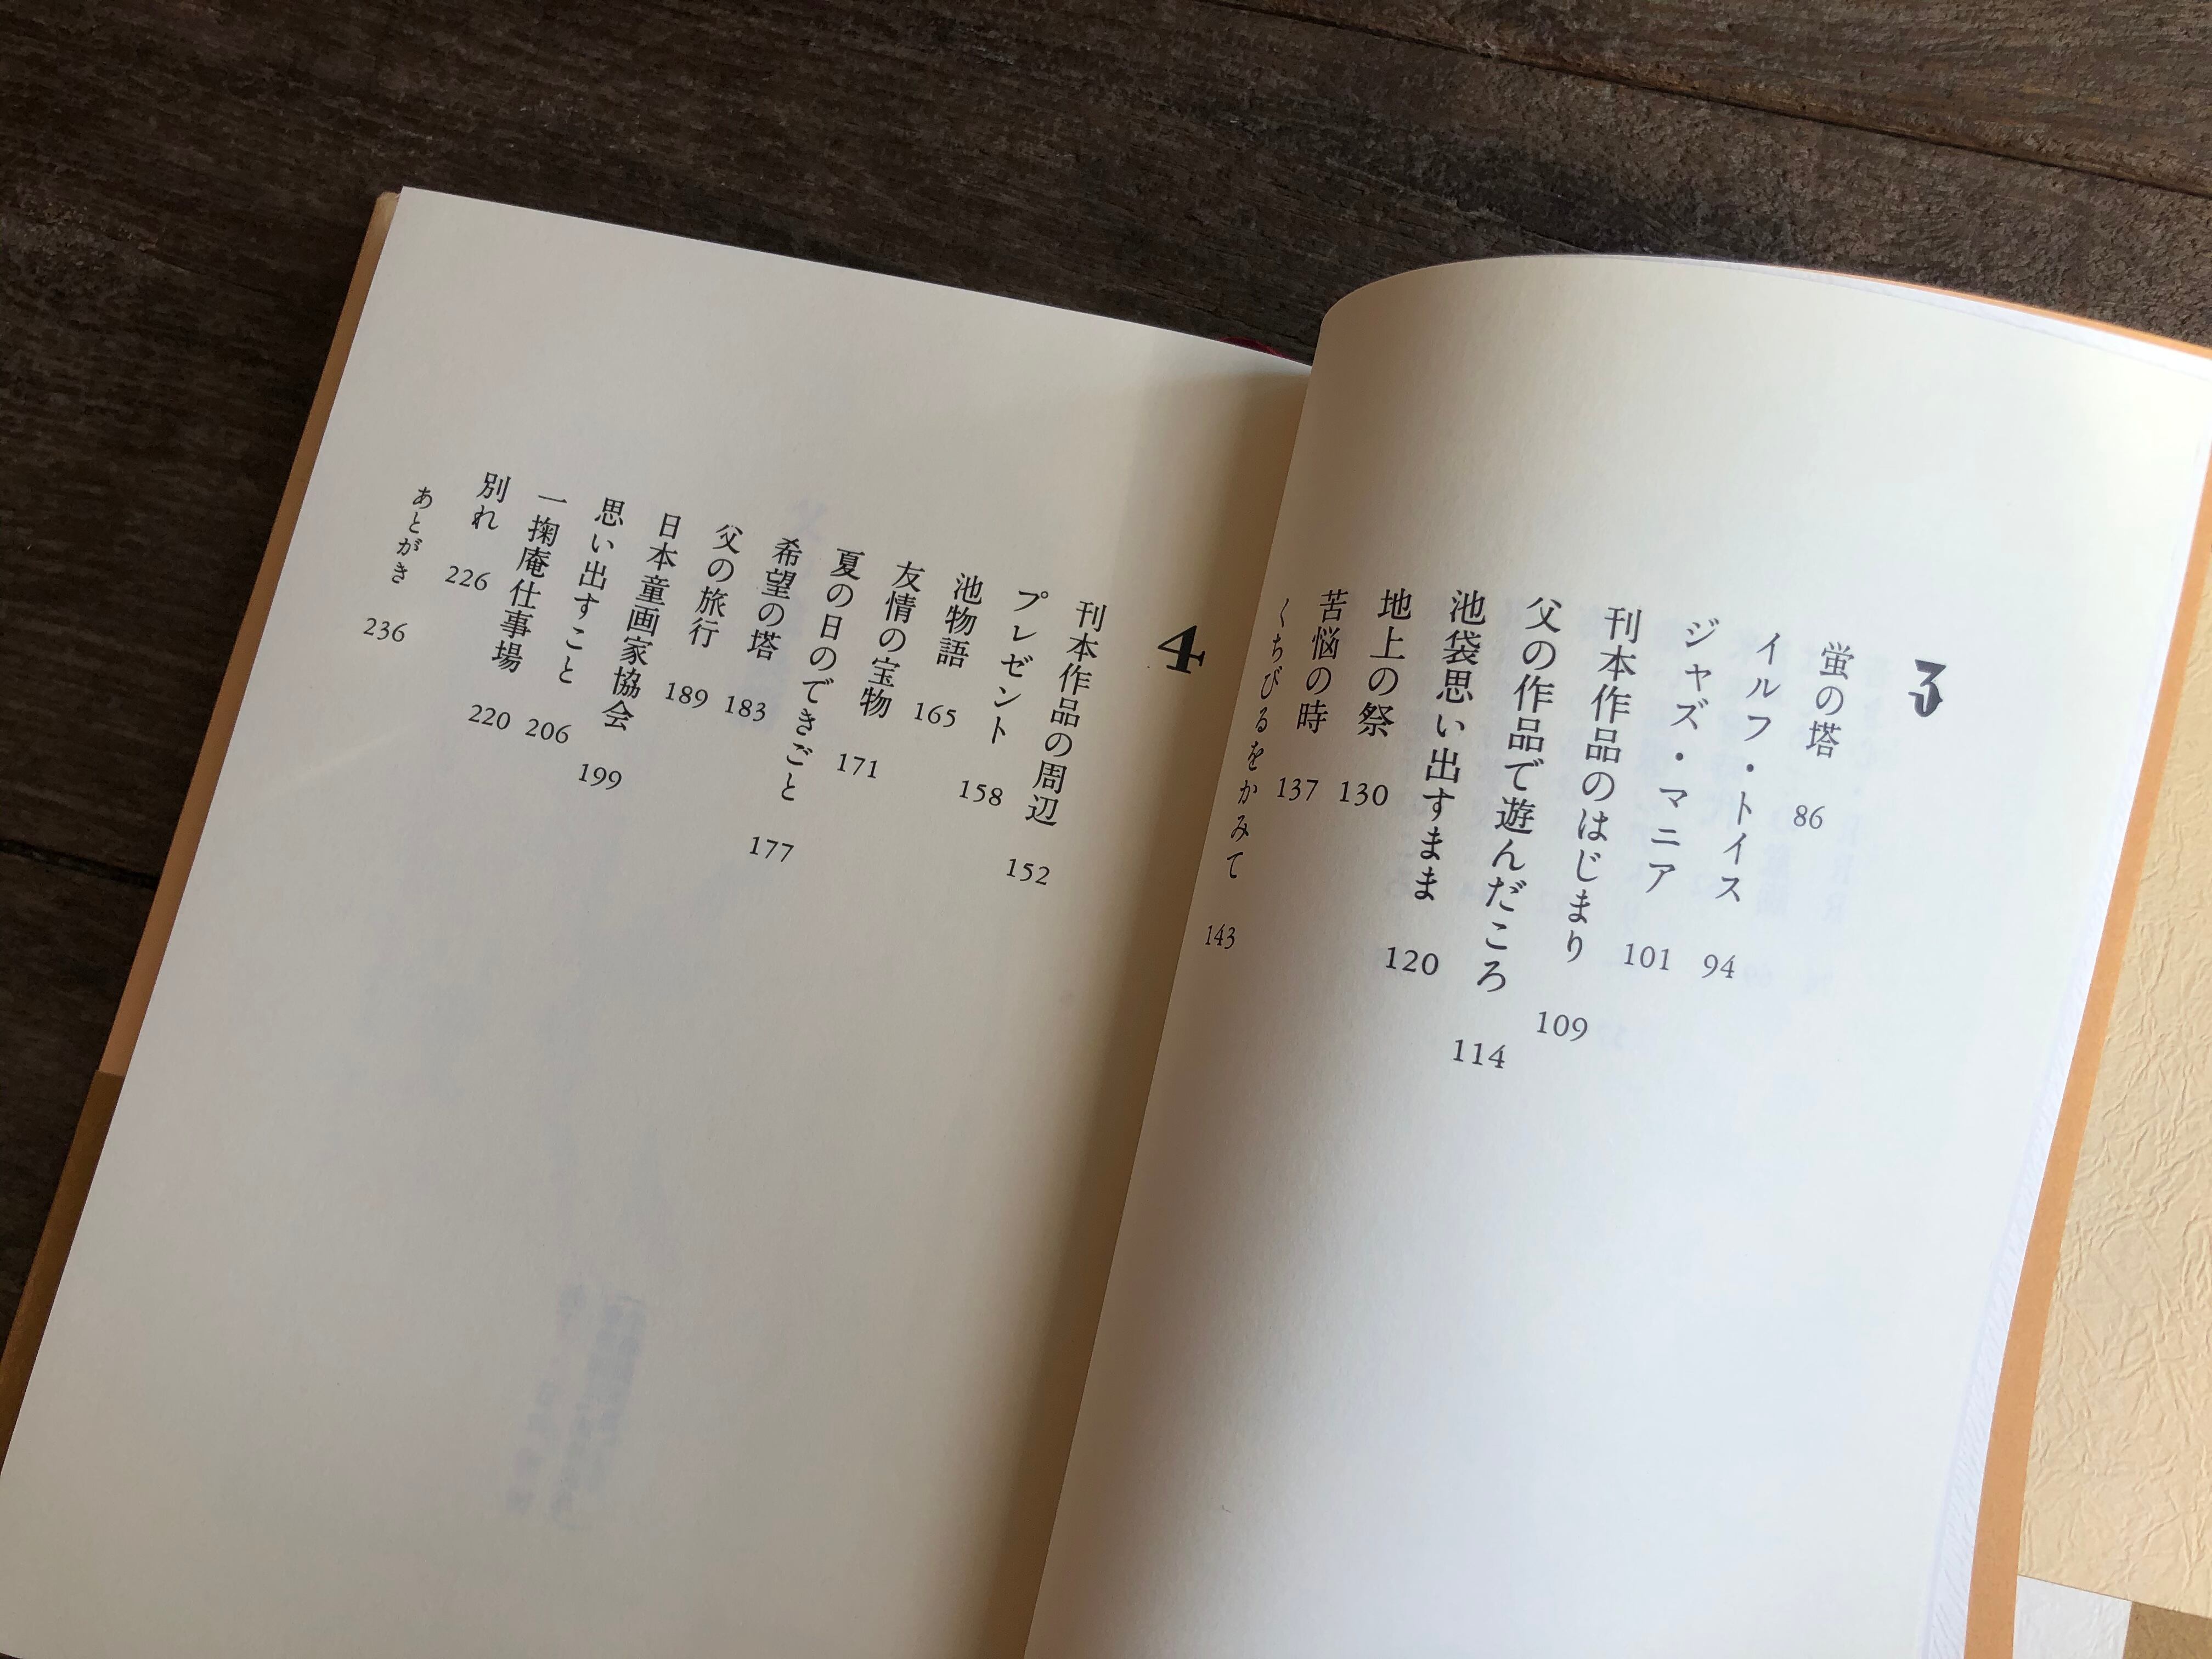 3
蛍の塔 86
イルフ・トイス 94
ジャズ・マニア 101
刊本作品のはじまり 109
父の作品で遊んだころ 114
池袋思い出すまま 120
地上の祭 130
苦悩の時 137
くちびるをかみて 143
4
刊本作品の周辺 152
プレゼント 158
池物語 165
友情の宝物 171
夏の日のできごと 177
希望の塔 183
父の旅行 189
日本童画家協会 199
思い出すこと 206
一掬庵仕事場 220
別れ 226
あとがき 236